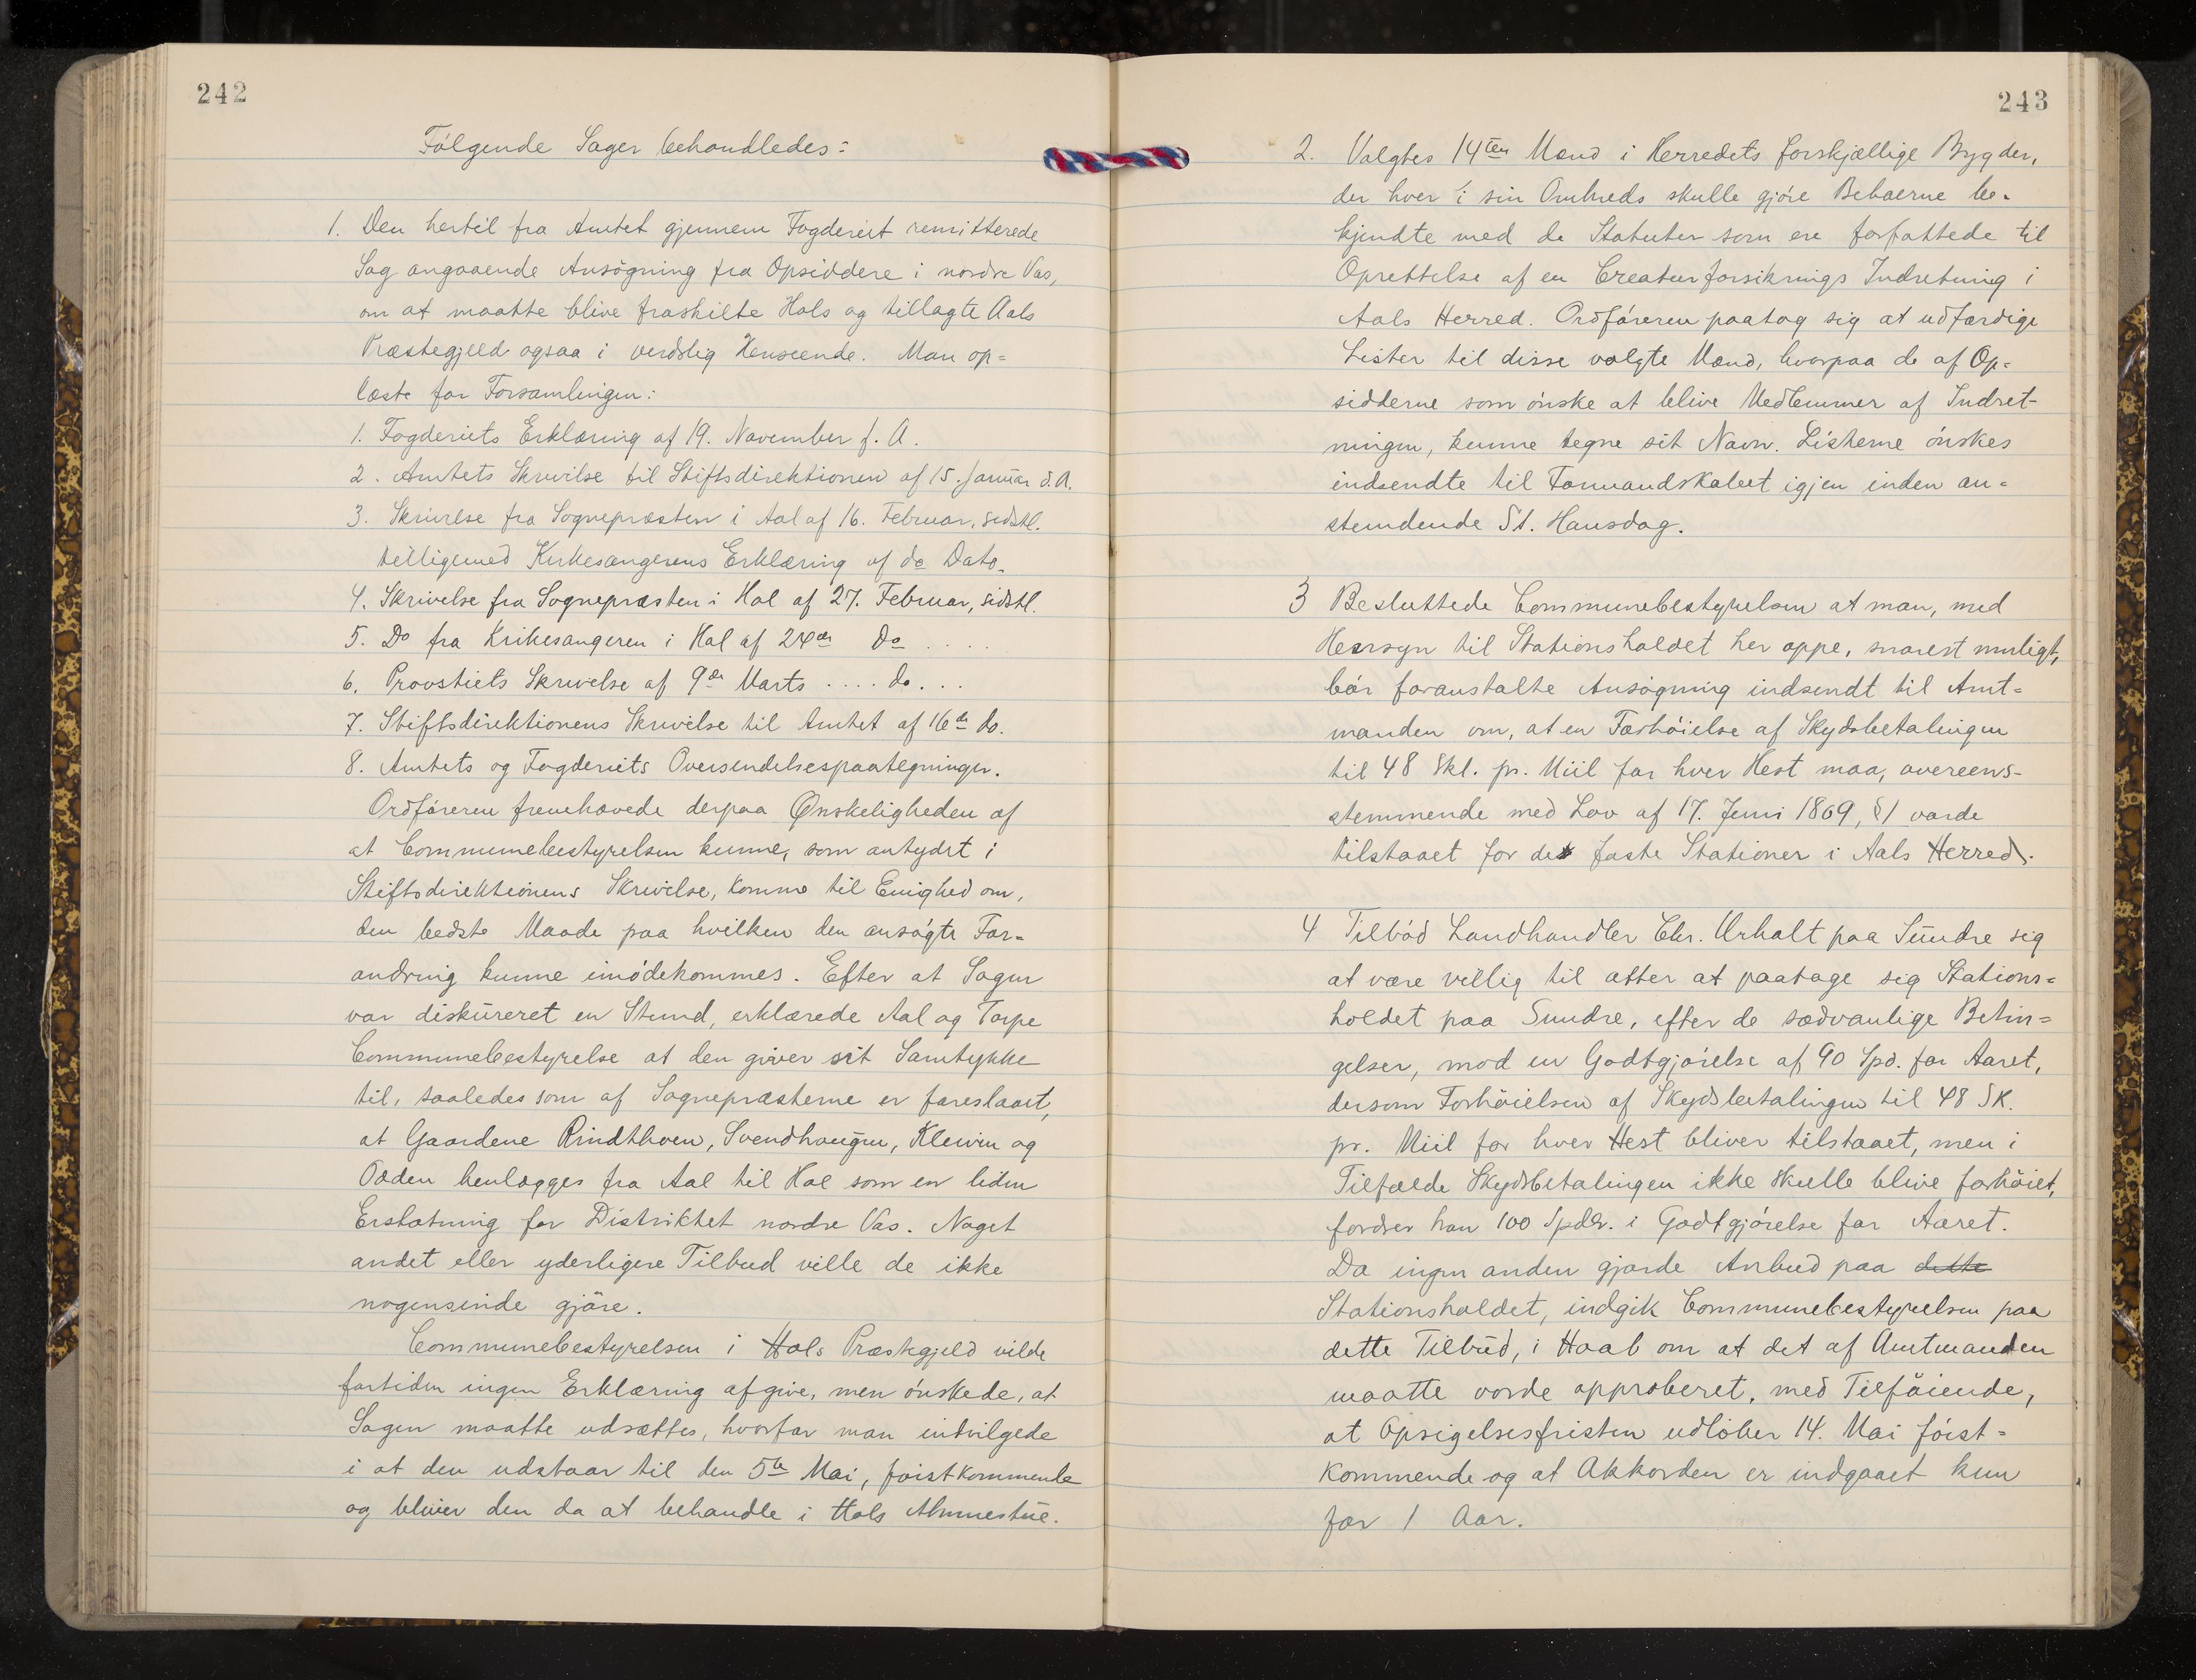 242
Følgende Sager behandledes:
1. Den hertil fra Amtet gjennem Fogderiet remitterede
Sag angaaende Ansøgning fra Opsiddere i nordre Vas,
om at maatte blive fraskilte Hols og tillagte Aals
Præstegjeld ogsaa i verdslig Henseende. Man op=
læste for Forsamlingen:
1. Fogderiets Erklæring af 19. November f. A.
2. Amtets Skrivelse til Stiftsdirektionen af 15. Januar d. A.
3. Skrivelse fra Sognepræsten i Aal af 16. Februar, sidstl.
tilligemed Kirkesangerens Erklæring af do Dato.
4. Skrivelse fra Sognepræsten i Hol af 27. Februar, sidstl.
5. Do fra Krikesangeren i Hol af 24de Do ....
6. Provstiets Skrivelse af 9de Marts .... do...
7. Stiftsdirektionens Skrivelse til Amtet af 16de do.
8. Amtets og Fogderiets Oversendelsespaategninger.
Ordføreren fremhævede derpaa Ønskeligheden af
at Communebestyrelsen kunne, som antydet i
Stiftsdirektionens Skrivelse, komme til Enighed om,
den bedste Maade paa hvilken den ansøgte For=
andring kunne imødekommes. Efter at Sagen
var diskūreret en Stund, erklærede Aal og Torpe
Communebestyrelse at den giver sit Samtykke
til, saaledes som af Sognepræsterne er foreslaaet,
at Gaardene Rindthoen, Svendhaugen, Kleivin og
Odden henlægges fra Aal til Hol som en liden
Erstatning for Distriktet nordre Vas. Noget
andet eller yderligere Tilbud ville de ikke
nogensinde gjøre.
Communebestyrelsen i Hols Præstegjeld vilde
fortiden ingen Erklæring afgive, men ønskede, at
Sagen maatte udsættes, hvorfor man indvilgede
i at den udstaar til den 5te Mai, førstkommende
og bliver den da at behandle i Hols Almuestūe.
243
2. Valgtes 14ten Mænd i Herredets forskjællige Bygder,
der hver i sin Omkreds skulle gjøre Beboerne be-
kjendte med de Statuter som ere forfattede til
Oprettelse af en Creaturforsikrings Indretning i
Aals Herred. Ordføreren paatog sig at udfærdige
Lister til disse valgte Mænd, hvorpaa de af Op=
sidderne som ønske at blive Medlemmer af Indret-
ningen, kunne tegne sit Navn. Listerne ønskes
indsendte til Formandskabet igjen inden an=
stundende St. Hansdag.
3 Besluttede Communebestyrelsen at man, med
Hensyn til Stationsholdet her oppe, snarest muligt,
bør foranstalte Ansøgning indsendt til Amt=
manden om, at en Forhøielse af Skydsbetalingen
til 48 Skl. pr. Miil for hver Hest maa, overeens-
stemmende med Lov af 17. Juni 1869, §1 vorde
tilstaaet for de faste Stationer i Aals Herred.
4 Tilbød Landhandler Chr. Urholt paa Sūndre sig
at være villig til atter at paatage sig Stations=
holdet paa Sundre, efter de sædvanlige Betin=
gelser, mod en Godtgjørelse af 90 Spd. for Aaret,
dersom Forhøielsen af Skydsbetalingen til 48 SK.
pr. Miil for hver Hest bliver tilstaaet, men i
Tilfælde Skydsbetalingen ikke skulle blive forhøiet,
fordrer han 100 Spdlr. i Godtgjørelse for Aaret.
Da ingen anden gjorde Anbud paa dette
Stationsholdet, indgik Communebestyrelsen paa
dette Tilbūd, i Haab om at det af Amtmanden
maatte vorde approberet, med Tilføiende,
at Opsigelsesfristen udløber 14. Mai først=
kommende og at Akkorden er indgaaet kun
for 1 Aar.